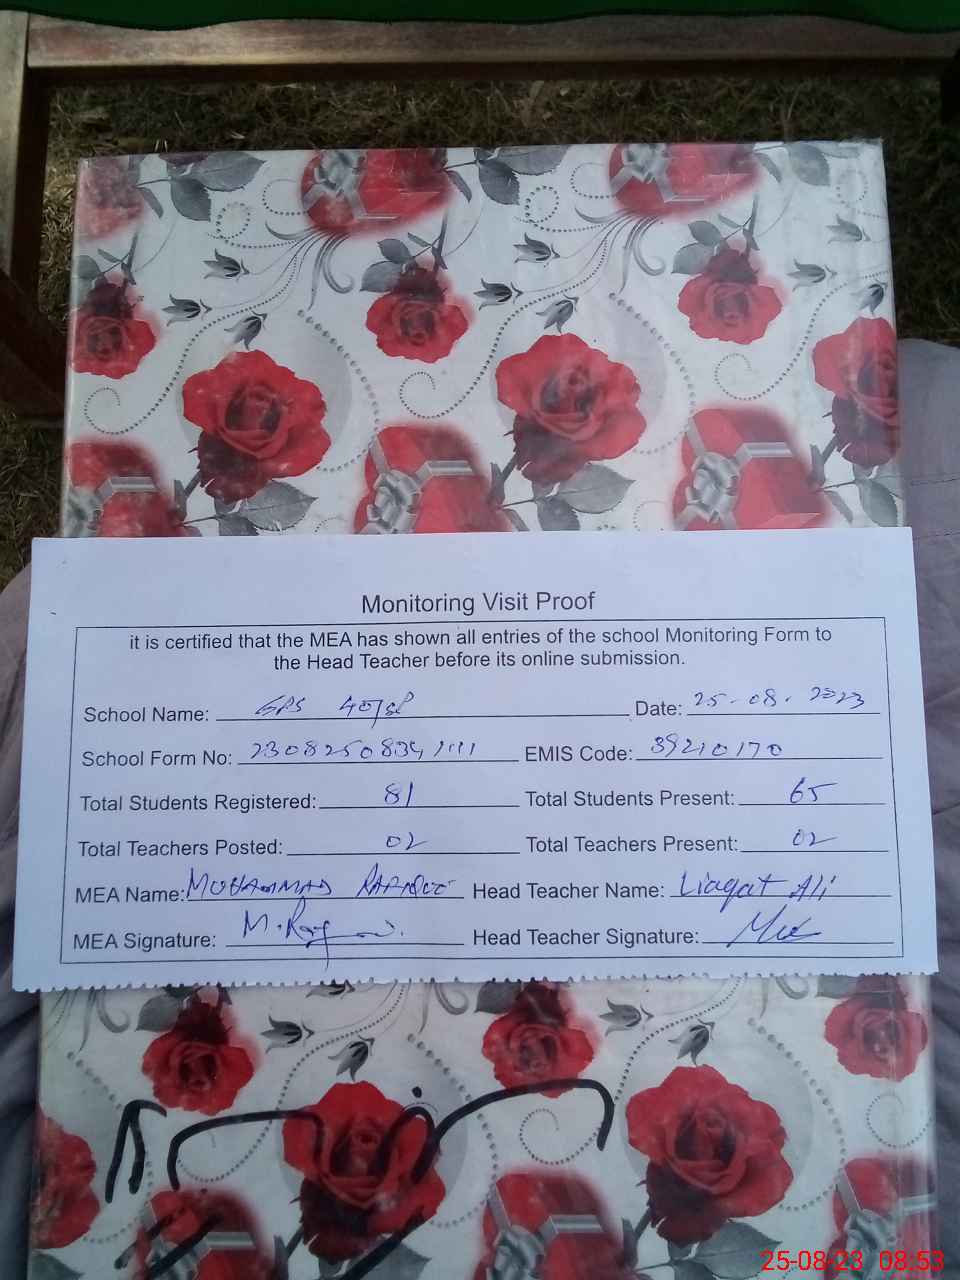 Monitoring Visit Proof
it is certified that the MEA has shown all entries of the school Monitoring Form to
the Head Teacher before its online submission.
School Name: GPS Date: 25-08-2023
School Form No: EMIS Code: 39210170
Total Students Registered: 81 Total Students Present: 65
Total Teachers Posted: 02 Total Teachers Present: 02
MEA Name: MUHAMMAD Head Teacher Name: Liaqat Ali
MEA Signature: Head Teacher Signature:
25-08-23 08:53